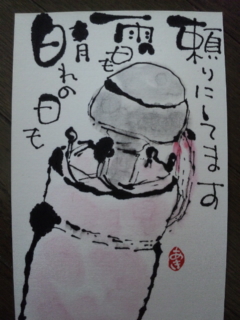 頼りにしてます
雨の日も
晴れの日も
あき